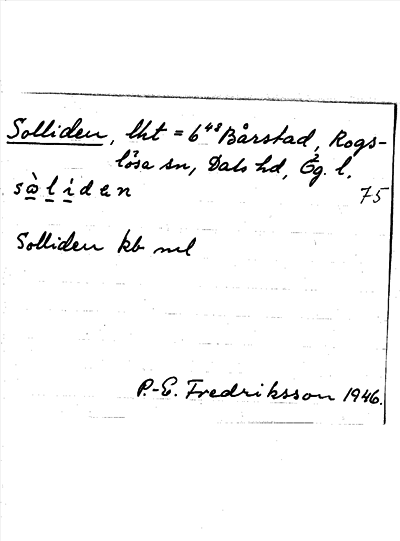 Solliden, lht = 6⁴⁸ Bårstad, Rogs-
lösa sn, Dals hd, Ög. l.
sòliden 75
Solliden kb ml
P.-E. Fredriksson 1946.